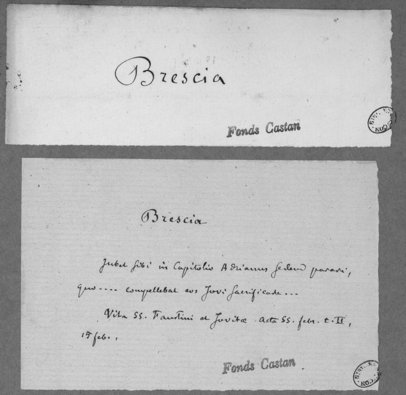 Brescia
Fonds Castan
Brescia
Jubet sibi in Capitolio Adrianus sedem parari,
quo .... compellebat eos Jovi sacrificade ...
Vita SS. Faustini et Jovitæ. Acta SS. febr. t. II,
15 febr.,
Fonds Castan